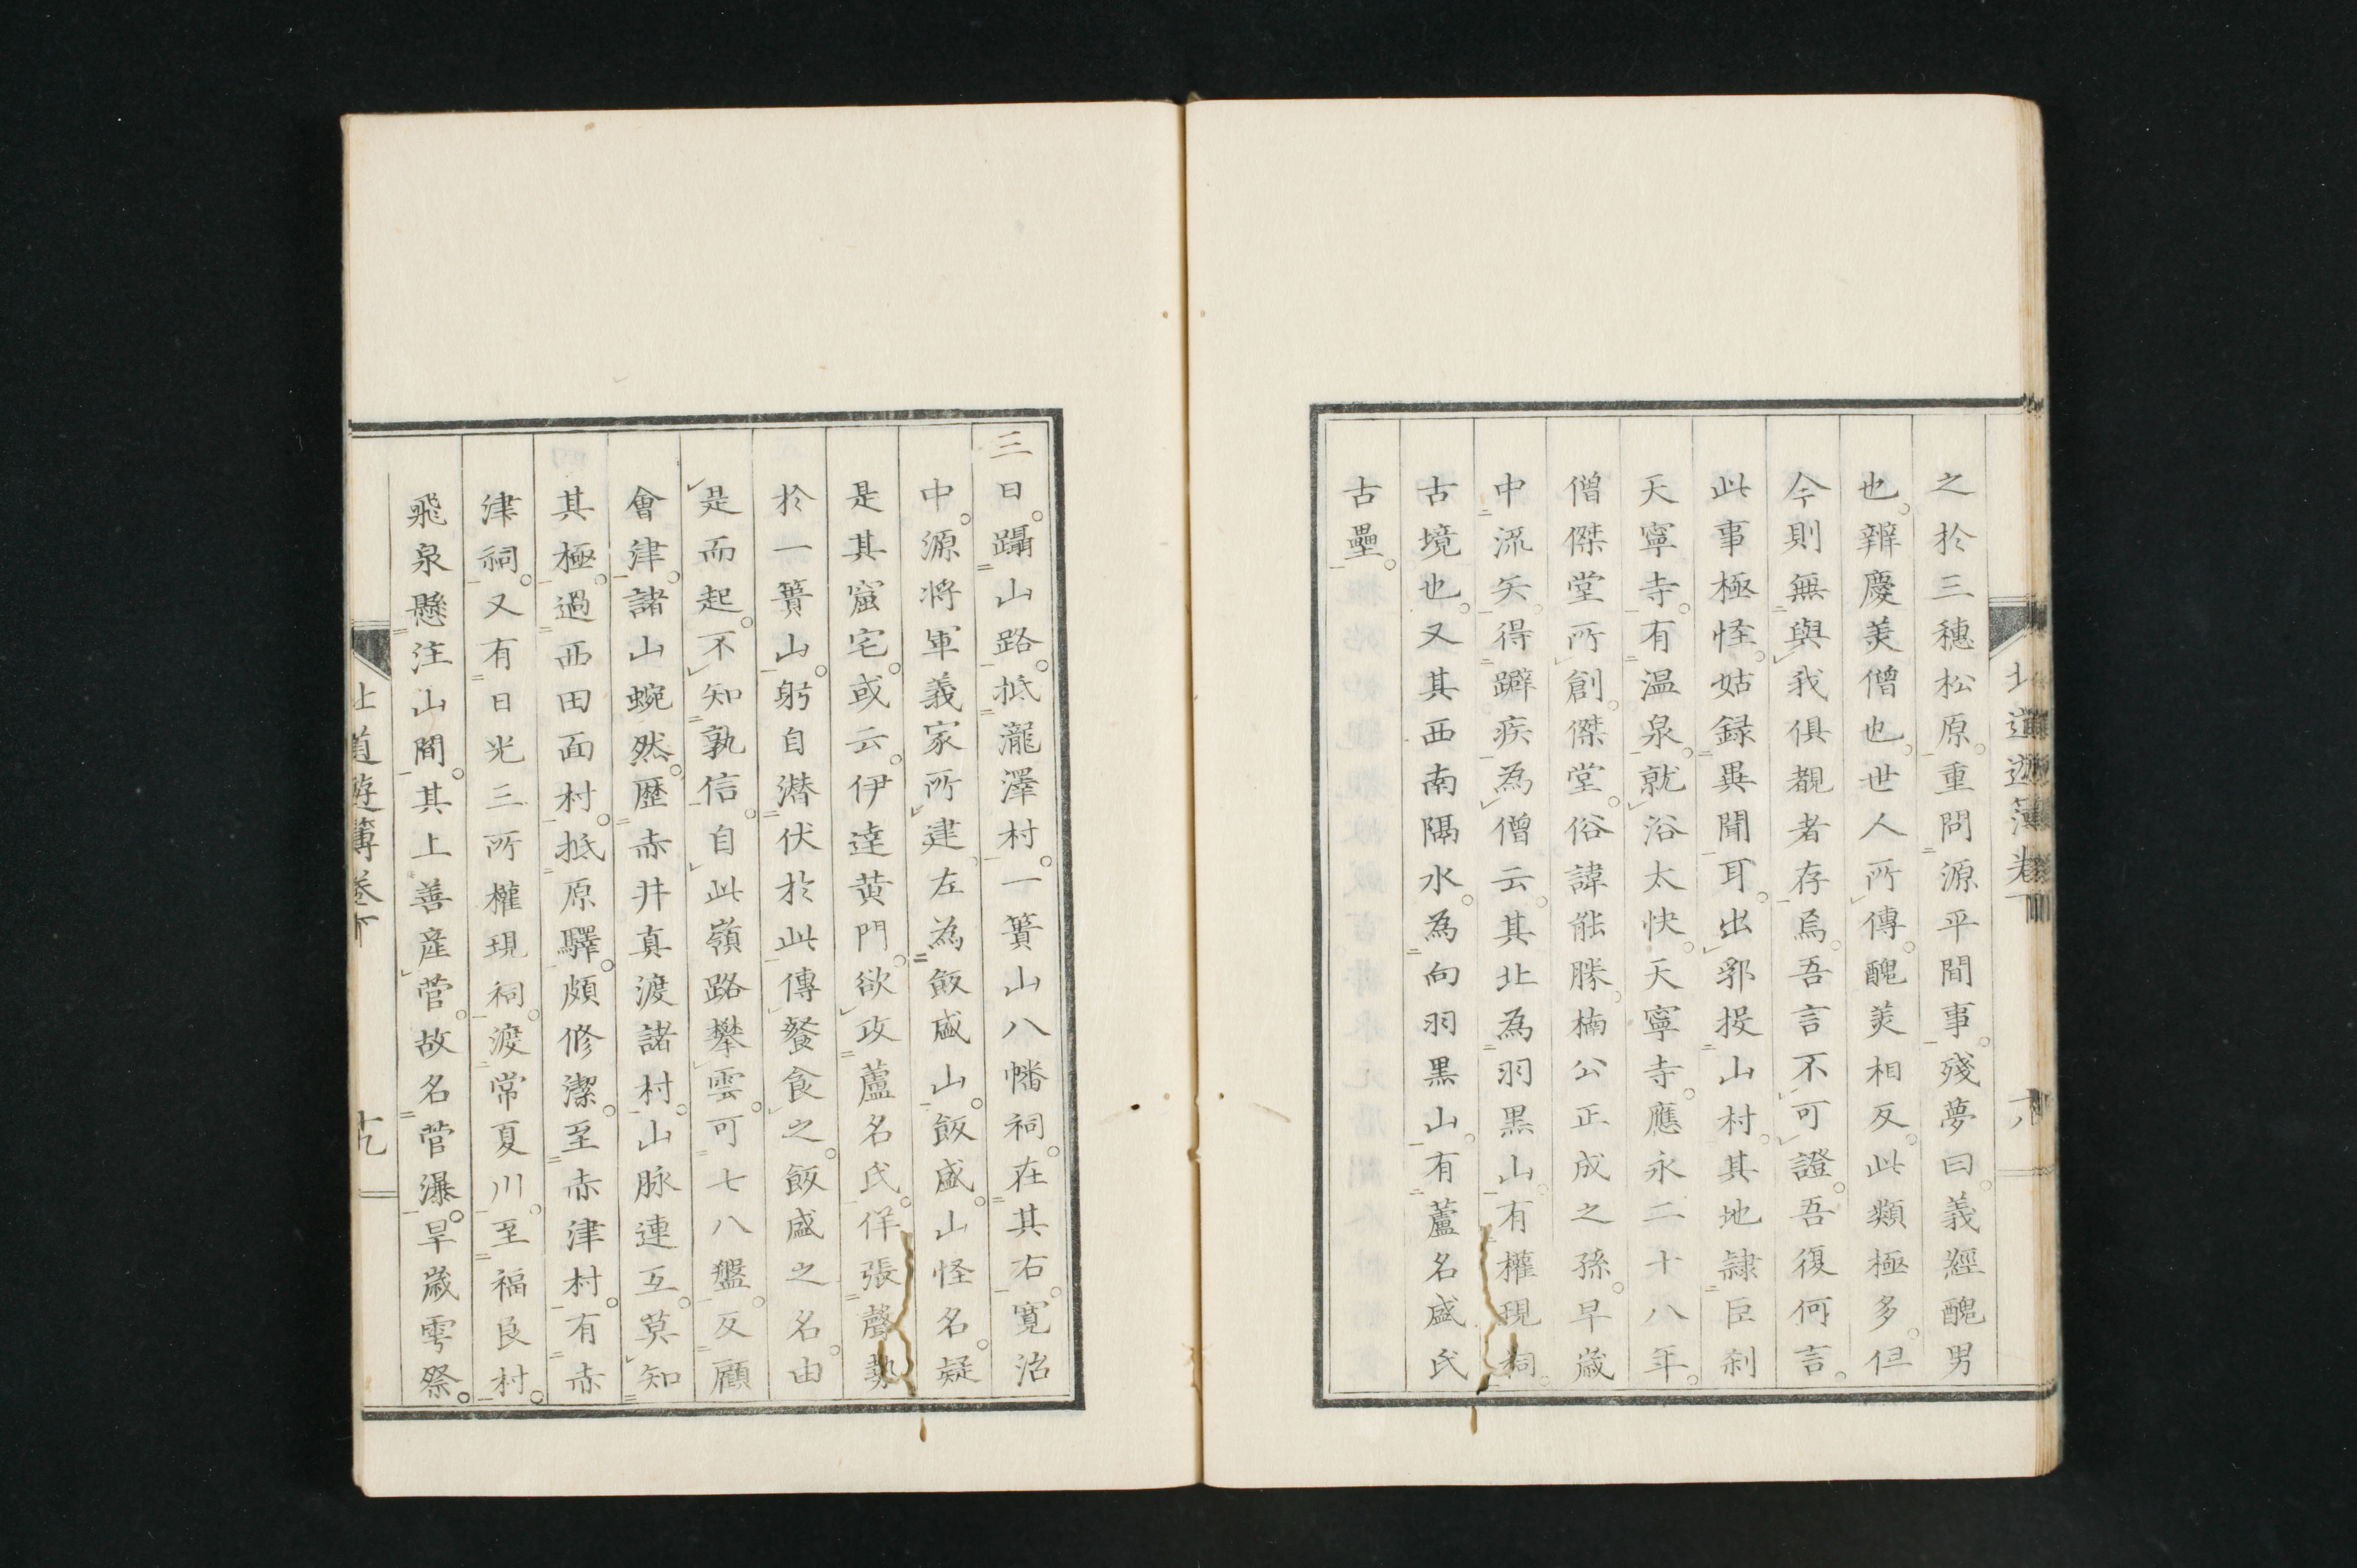 北道遊簿卷下 十八
之於三穗松原。重問源平間事。殘夢曰。義經醜男
也。辨慶美僧也。世人所傳。醜美相反。此類極多。但
今則無與我俱覩者存焉。吾言不可證。吾復何言。
此事極怪。姑録異聞耳。出郭投山村。其地隷臣刹
天寧寺。有温泉。就浴太快。天寧寺。應永二十八年。
僧傑堂所創。傑堂。俗諱能勝。楠公正成之孫。早歲
中流矢。得躃疾。為僧云。其北為羽黒山。有權現祠。
古境也。又其西南隔水。為向羽黒山。有蘆名盛氏
古壘。
三日。躡山路。抵瀧澤村。一簣山八幡祠。在其右。寛治
中。源將軍義家所建。左為飯盛山。飯盛。山怪名。疑
是其窟宅。或云。伊達黄門。欲攻蘆名氏。佯張聲勢
於一簣山。躬自潜伏於此。傳餐食之。飯盛之名。由
是而起。不知孰信。自此嶺路攀雲。可七八盤。反顧
會津。諸山蜿然。歴赤井真渡諸村。山脉連亙。莫知
其極。過西田面村。抵原驛。頗修潔。至赤津村。有赤
津祠。又有日光三所權現祠。渡常夏川。至福良村。
飛泉懸注山間。其上善産菅。故名菅瀑。旱歲雩祭。
北道遊簿卷下 十九